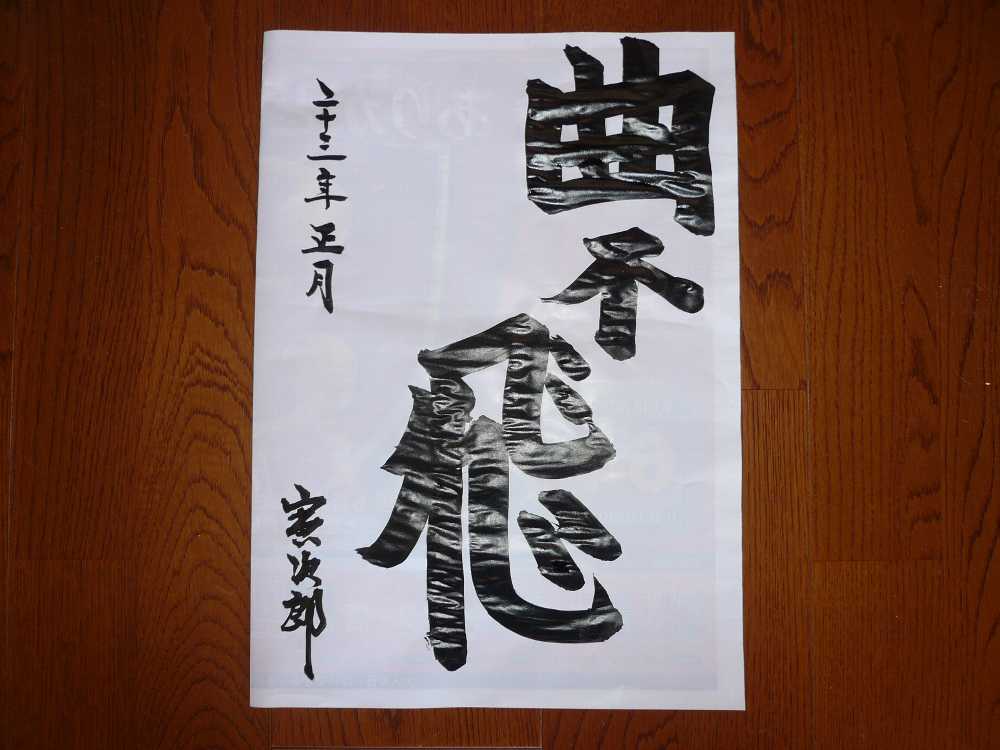 曲不飛
二十三年正月
寅次郎